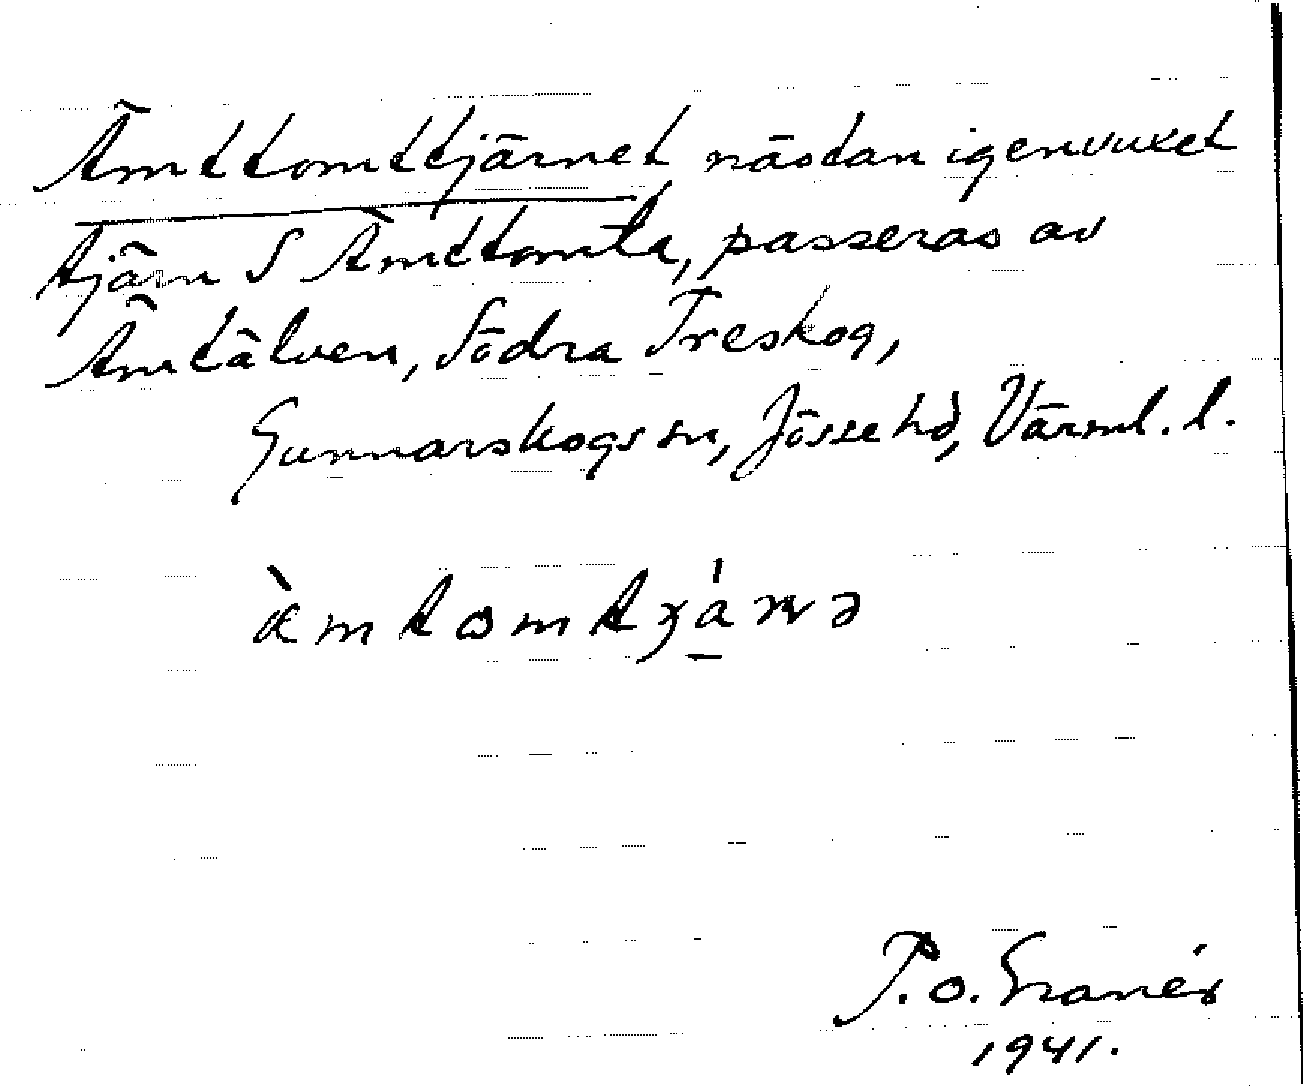 Ämttomttjärnet nästan igenvuxet
tjärn S Ämttomta, passeras av
Ämtälven, Södra Treskog,
Gunnarskogs sn, Jösse hd, Värml. l.
P. O.
1941.